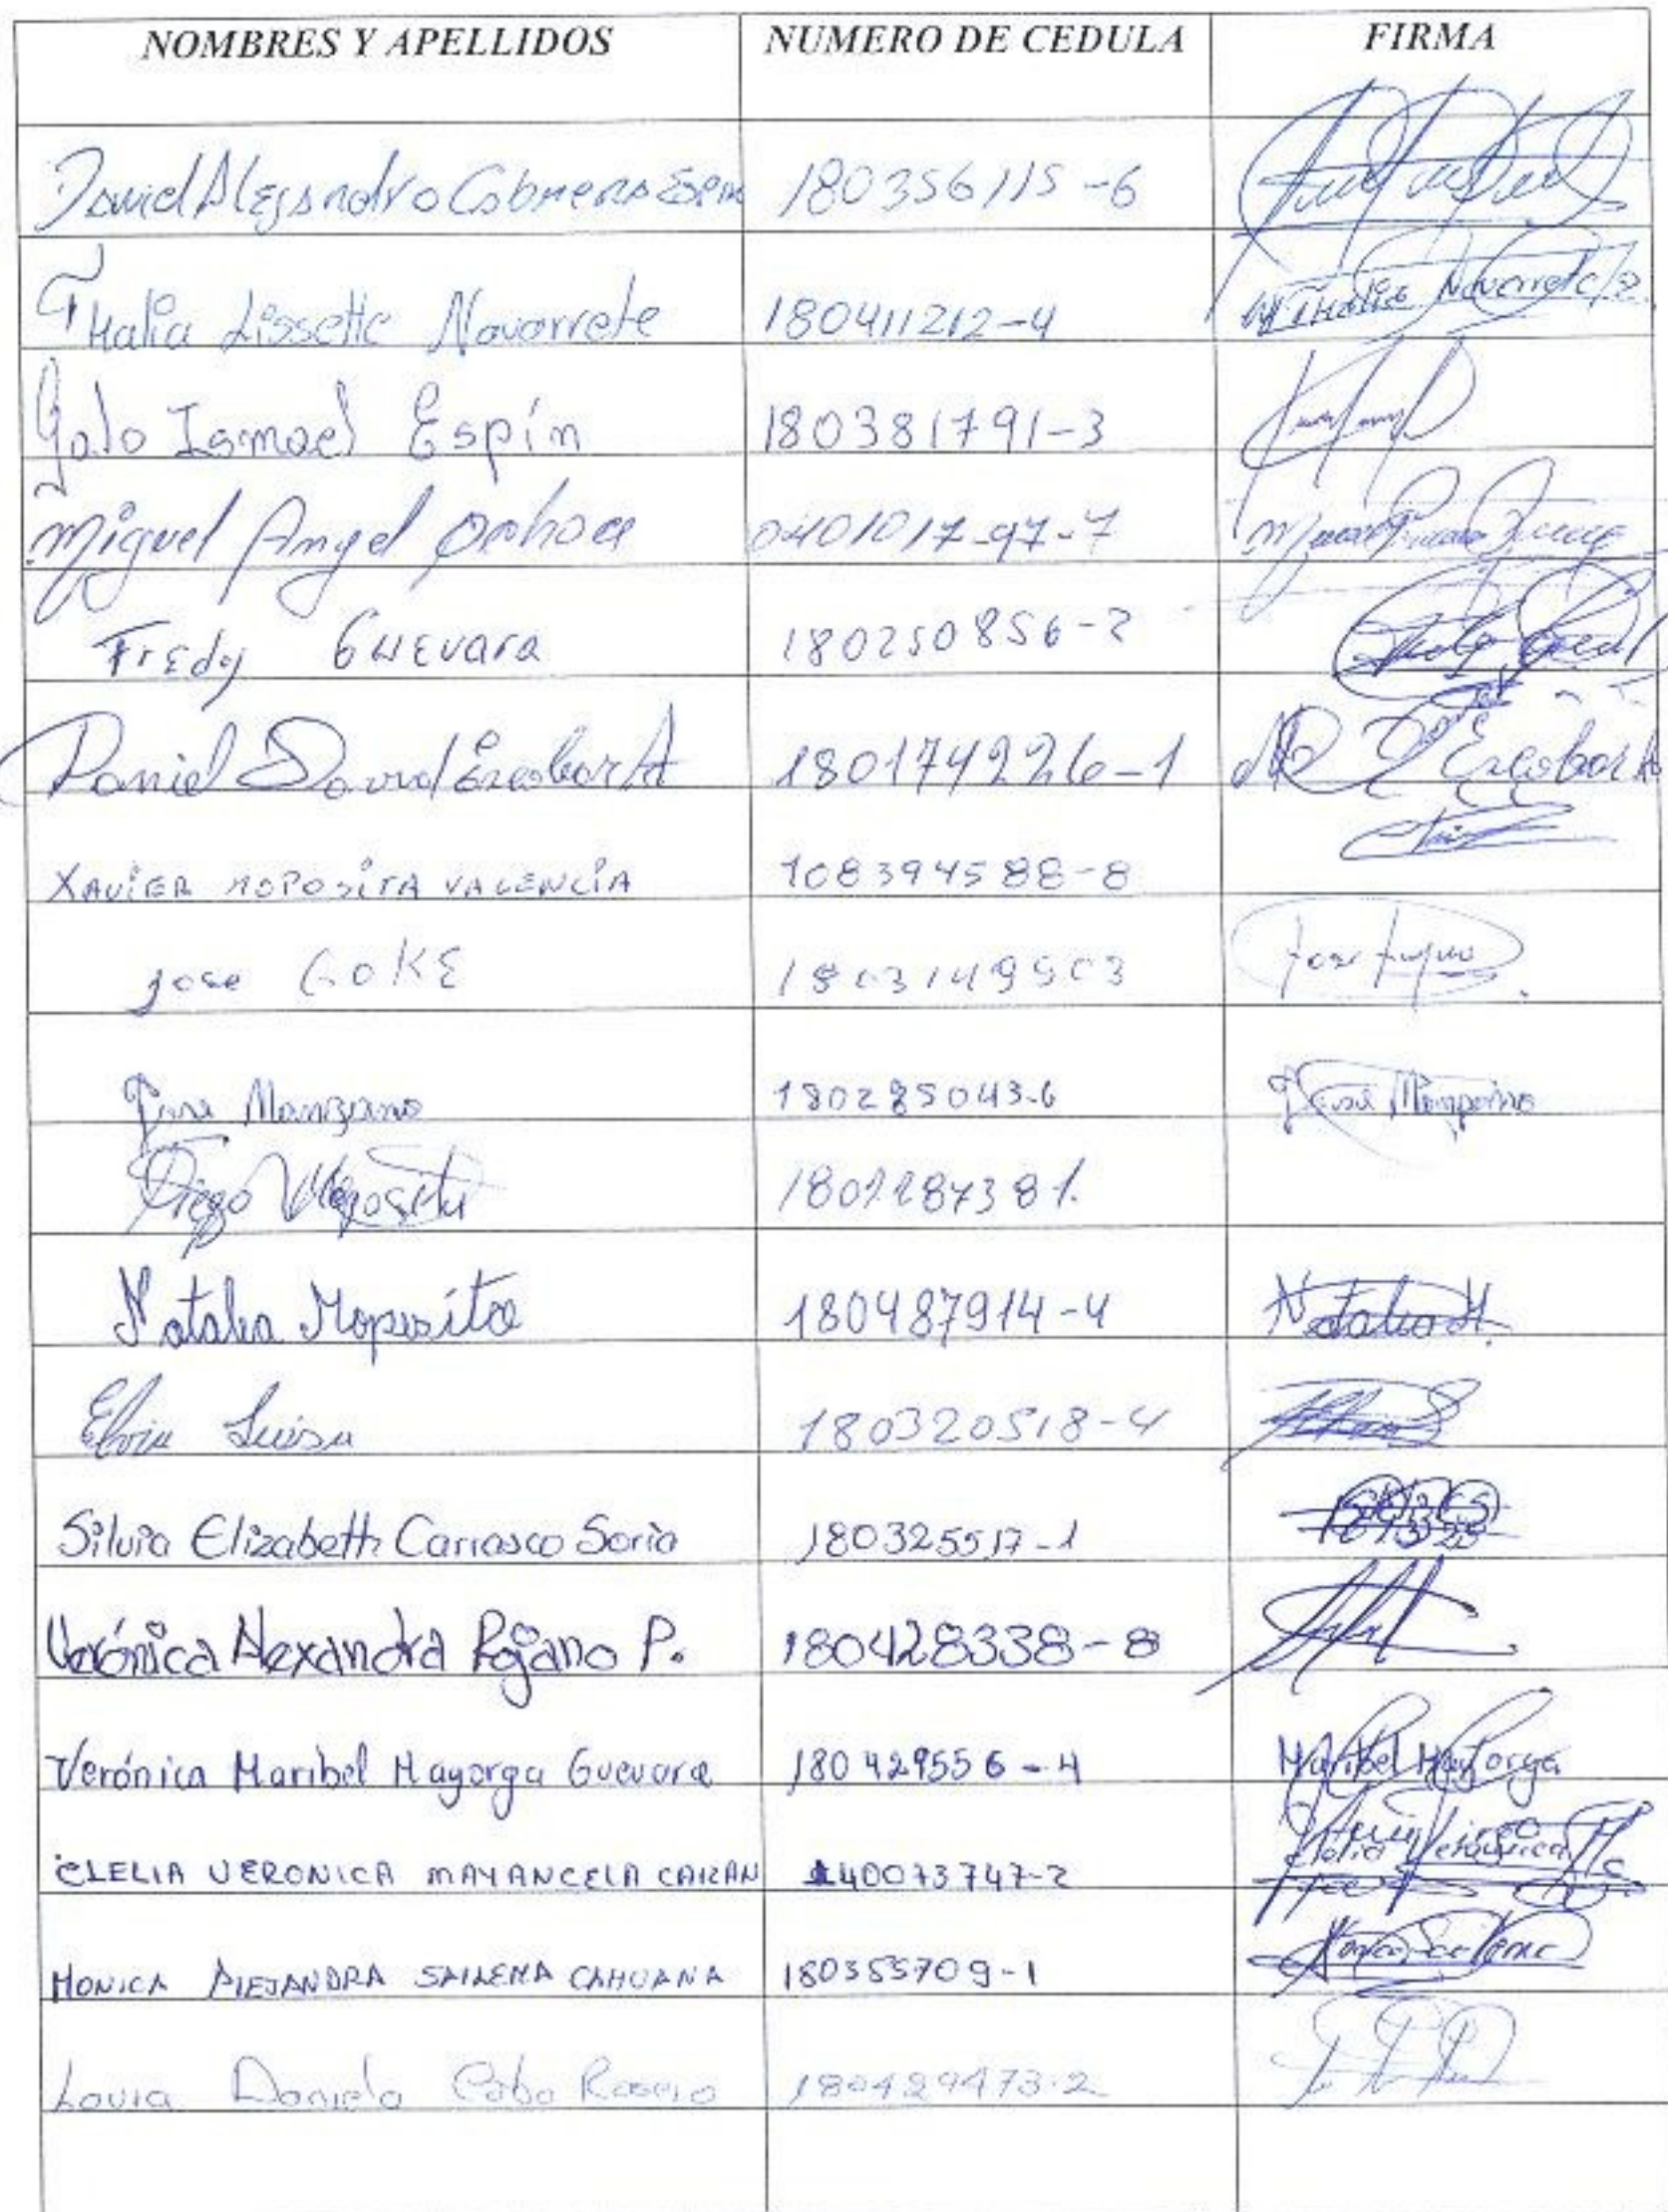 NOMBRES Y APELLIDOS NUMERO DE CEDULA FIRMA
David Alejandro Cabrera Espin 180356115-6
Thalia Lissette Navarrete 180411212-4 Thalia Navarrete
Galo Ismael Espín 180381791-3
Miguel Angel Ochoa 040101797-7
Fredy Guevara 180250856-2
Daniel David Escobar A 180174226-1 Escobar A
XAVIER MOPOSITA VALENCIA 108394588-8
Jose GOKE 1803149903
Jose Manzano 180285043-6 Jose Manzano
Diego Moposita
Natalia Moposita 180487914-4 Natalia M.
180320518-4
Silvia Elizabeth Carrasco Soria 180325517-1
Verónica Alexandra Pojano P. 180428338-8
Verónica Maribel Mayorga Guevara 180429556-4 Maribel Mayorga
CLELIA VERONICA MAYANCELA CAIZAN 140073747-2
MONICA ALEJANDRA SAILEMA CAHUANA 180355709-1 Monica Sailema
Daniela Cobo Rosero 180429473-2